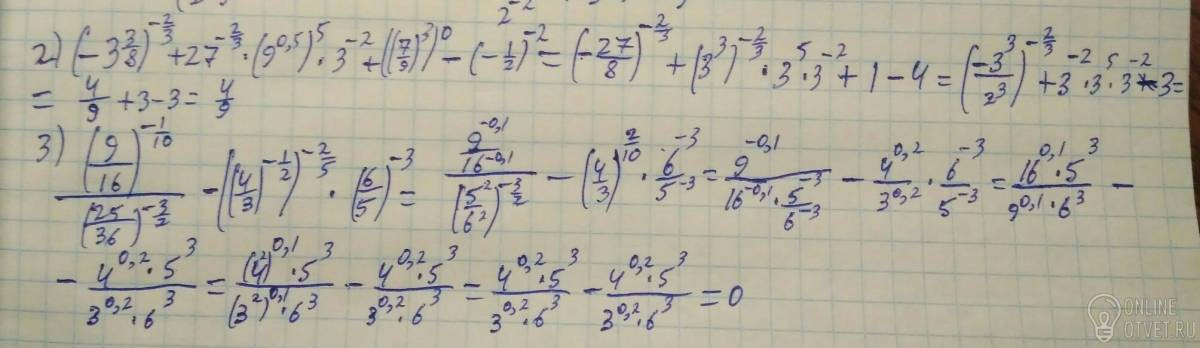 2^{-2}
2) (-3\frac{3}{8})^{-\frac{2}{3}} + 27^{-\frac{2}{3}} · (9^{0,5})^5 · 3^{-2} + ((\frac{7}{9})^3)^0 - (-\frac{1}{2})^{-2} = (-\frac{27}{8})^{-\frac{2}{3}} + (3^3)^{-\frac{2}{3}} · 3^5 · 3^{-2} + 1 - 4 = (\frac{-3^3}{2^3})^{-\frac{2}{3}} + 3^{-2} · 3^5 · 3^{-2} - 3 =
= \frac{4}{9} + 3 - 3 = \frac{4}{9}
3) \frac{(\frac{9}{16})^{-\frac{1}{10}}}{(\frac{25}{36})^{-\frac{3}{2}}} - ((\frac{4}{3})^{-\frac{1}{2}})^{-\frac{2}{5}} · (\frac{6}{5})^{-3} = \frac{\frac{9^{-0,1}}{16^{-0,1}}}{(\frac{5^2}{6^2})^{-\frac{3}{2}}} - (\frac{4}{3})^{\frac{2}{10}} · \frac{6^{-3}}{5^{-3}} = \frac{9^{-0,1}}{16^{-0,1} · \frac{5^{-3}}{6^{-3}}} - \frac{4^{0,2}}{3^{0,2}} · \frac{6^{-3}}{5^{-3}} = \frac{16^{0,1} · 5^3}{9^{0,1} · 6^3} -
- \frac{4^{0,2} · 5^3}{3^{0,2} · 6^3} = \frac{(4^2)^{0,1} · 5^3}{(3^2)^{0,1} · 6^3} - \frac{4^{0,2} · 5^3}{3^{0,2} · 6^3} = \frac{4^{0,2} · 5^3}{3^{0,2} · 6^3} - \frac{4^{0,2} · 5^3}{3^{0,2} · 6^3} = 0
ONLINE
OTVET.RU